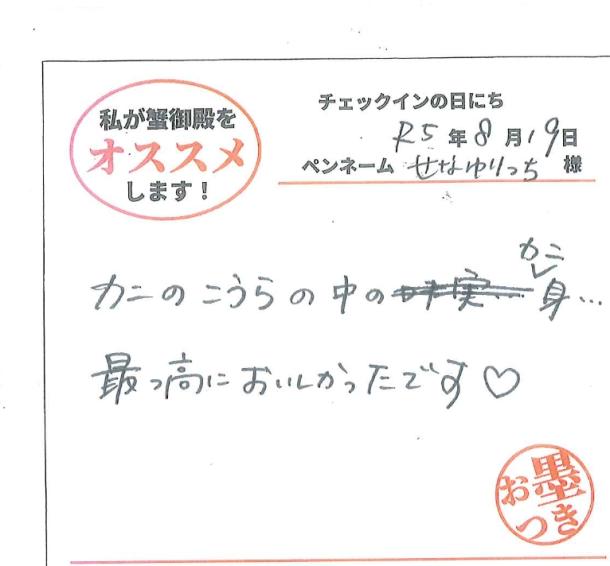 私が蟹御殿を
オススメ
します！
チェックインの日にち
R5年8月19日
ペンネーム せなゆりっち 様
カニのこうらの中のカニ身…
最っ高においしかったです♡
お墨
つき